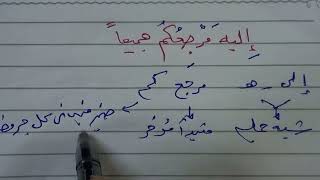 إليه مَرْجِعُكُم جميعاً
إلى - ـه مرجع كم
شبه جملة مبتدأ مؤخر ضمير مبني في محل جر مضا